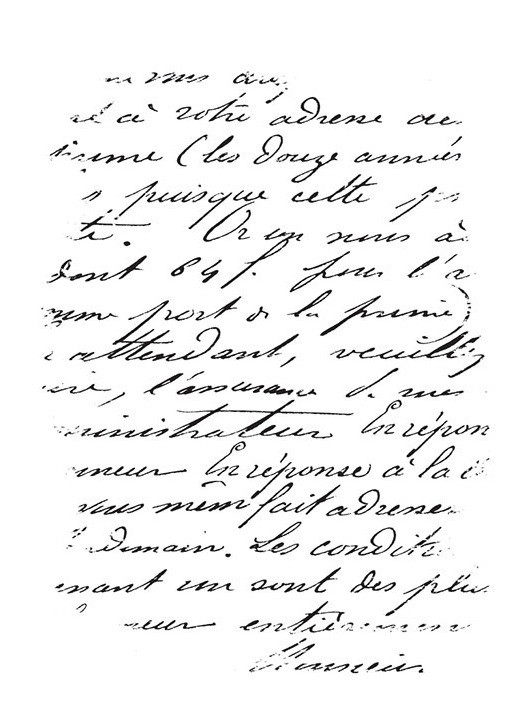 à votre adresse de
(les douze années
puisque cette
té. Or on nous a
sont 64 f. pour l'
port de la prime)
attendant, veuillez
l'assurance de mes
ministrateur En répon
En réponse à la
vous mêm fait adresse
demain. Les condit
enant un sont des plu
entièremen
Monsieur.